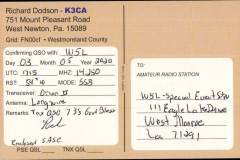 Richard Dodson - K3CA
751 Mount Pleasant Road
West Newton, Pa. 15089
Grid: FN00cf • Westmoreland County
Confirming QSO with W5L
Day 03 Month 05 Year 2020
UTC 1715 MHZ 14.250
RST 59+10 MODE SSB
Transceiver Orion II
Antenna Longwire
Remarks Tnx QSO 73s God Bless
Rich
Enclosed SASE
PSE QSL TNX QSL
TO:
AMATEUR RADIO STATION
W5L-Special Event Stn
111 Eagle Lake Drive
West Monroe
La 71291